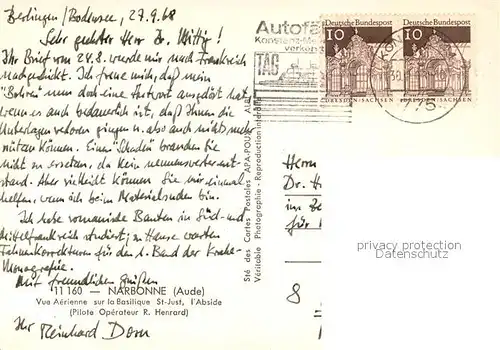 Berlingen / Bodensee, 27.9.68
Sehr geehrter Herr Dr. Wittig!
Ihr Brief vom 24.8. wurde mir nach Frankreich
nachgeschickt. Ich freue mich, daß mein
"Bohren" nun doch eine Antwort ausgelöst hat,
wenn es auch bedauerlich ist, daß Ihnen die
Unterlagen verloren gingen u. also auch nichts mehr
nützen können. Einen "Schaden" brauchen Sie
nicht zu ersetzen, da kein nennenswerter ent-
stand. Aber vielleicht können Sie mir einmal
helfen, wenn ich beim Materialsuchen bin.
Ich habe romanische Bauten in Süd- und
Mittelfrankreich studiert; zu Hause warten
Fahnenkorrekturen für den 1. Band der
Monografie.
Mit freundlichen Grüßen
11 160 — NARBONNE (Aude)
Vue Aérienne sur la Basilique St-Just, l'Abside
(Pilote Opérateur R. Henrard)
Ihr Reinhard Dorn
Sté des Cartes Postales APA-POUX - ALBI
Véritable Photographie - Reproduction interdite
Autofäh
Konstanz-Me
verkehr
TAG
Deutsche Bundespost
10
DRESDEN/SACHSEN
Deutsche Bundespost
10
DRESDEN/SACHSEN
KON
Herrn
Dr. H
für
8
privacy protection
Datenschutz